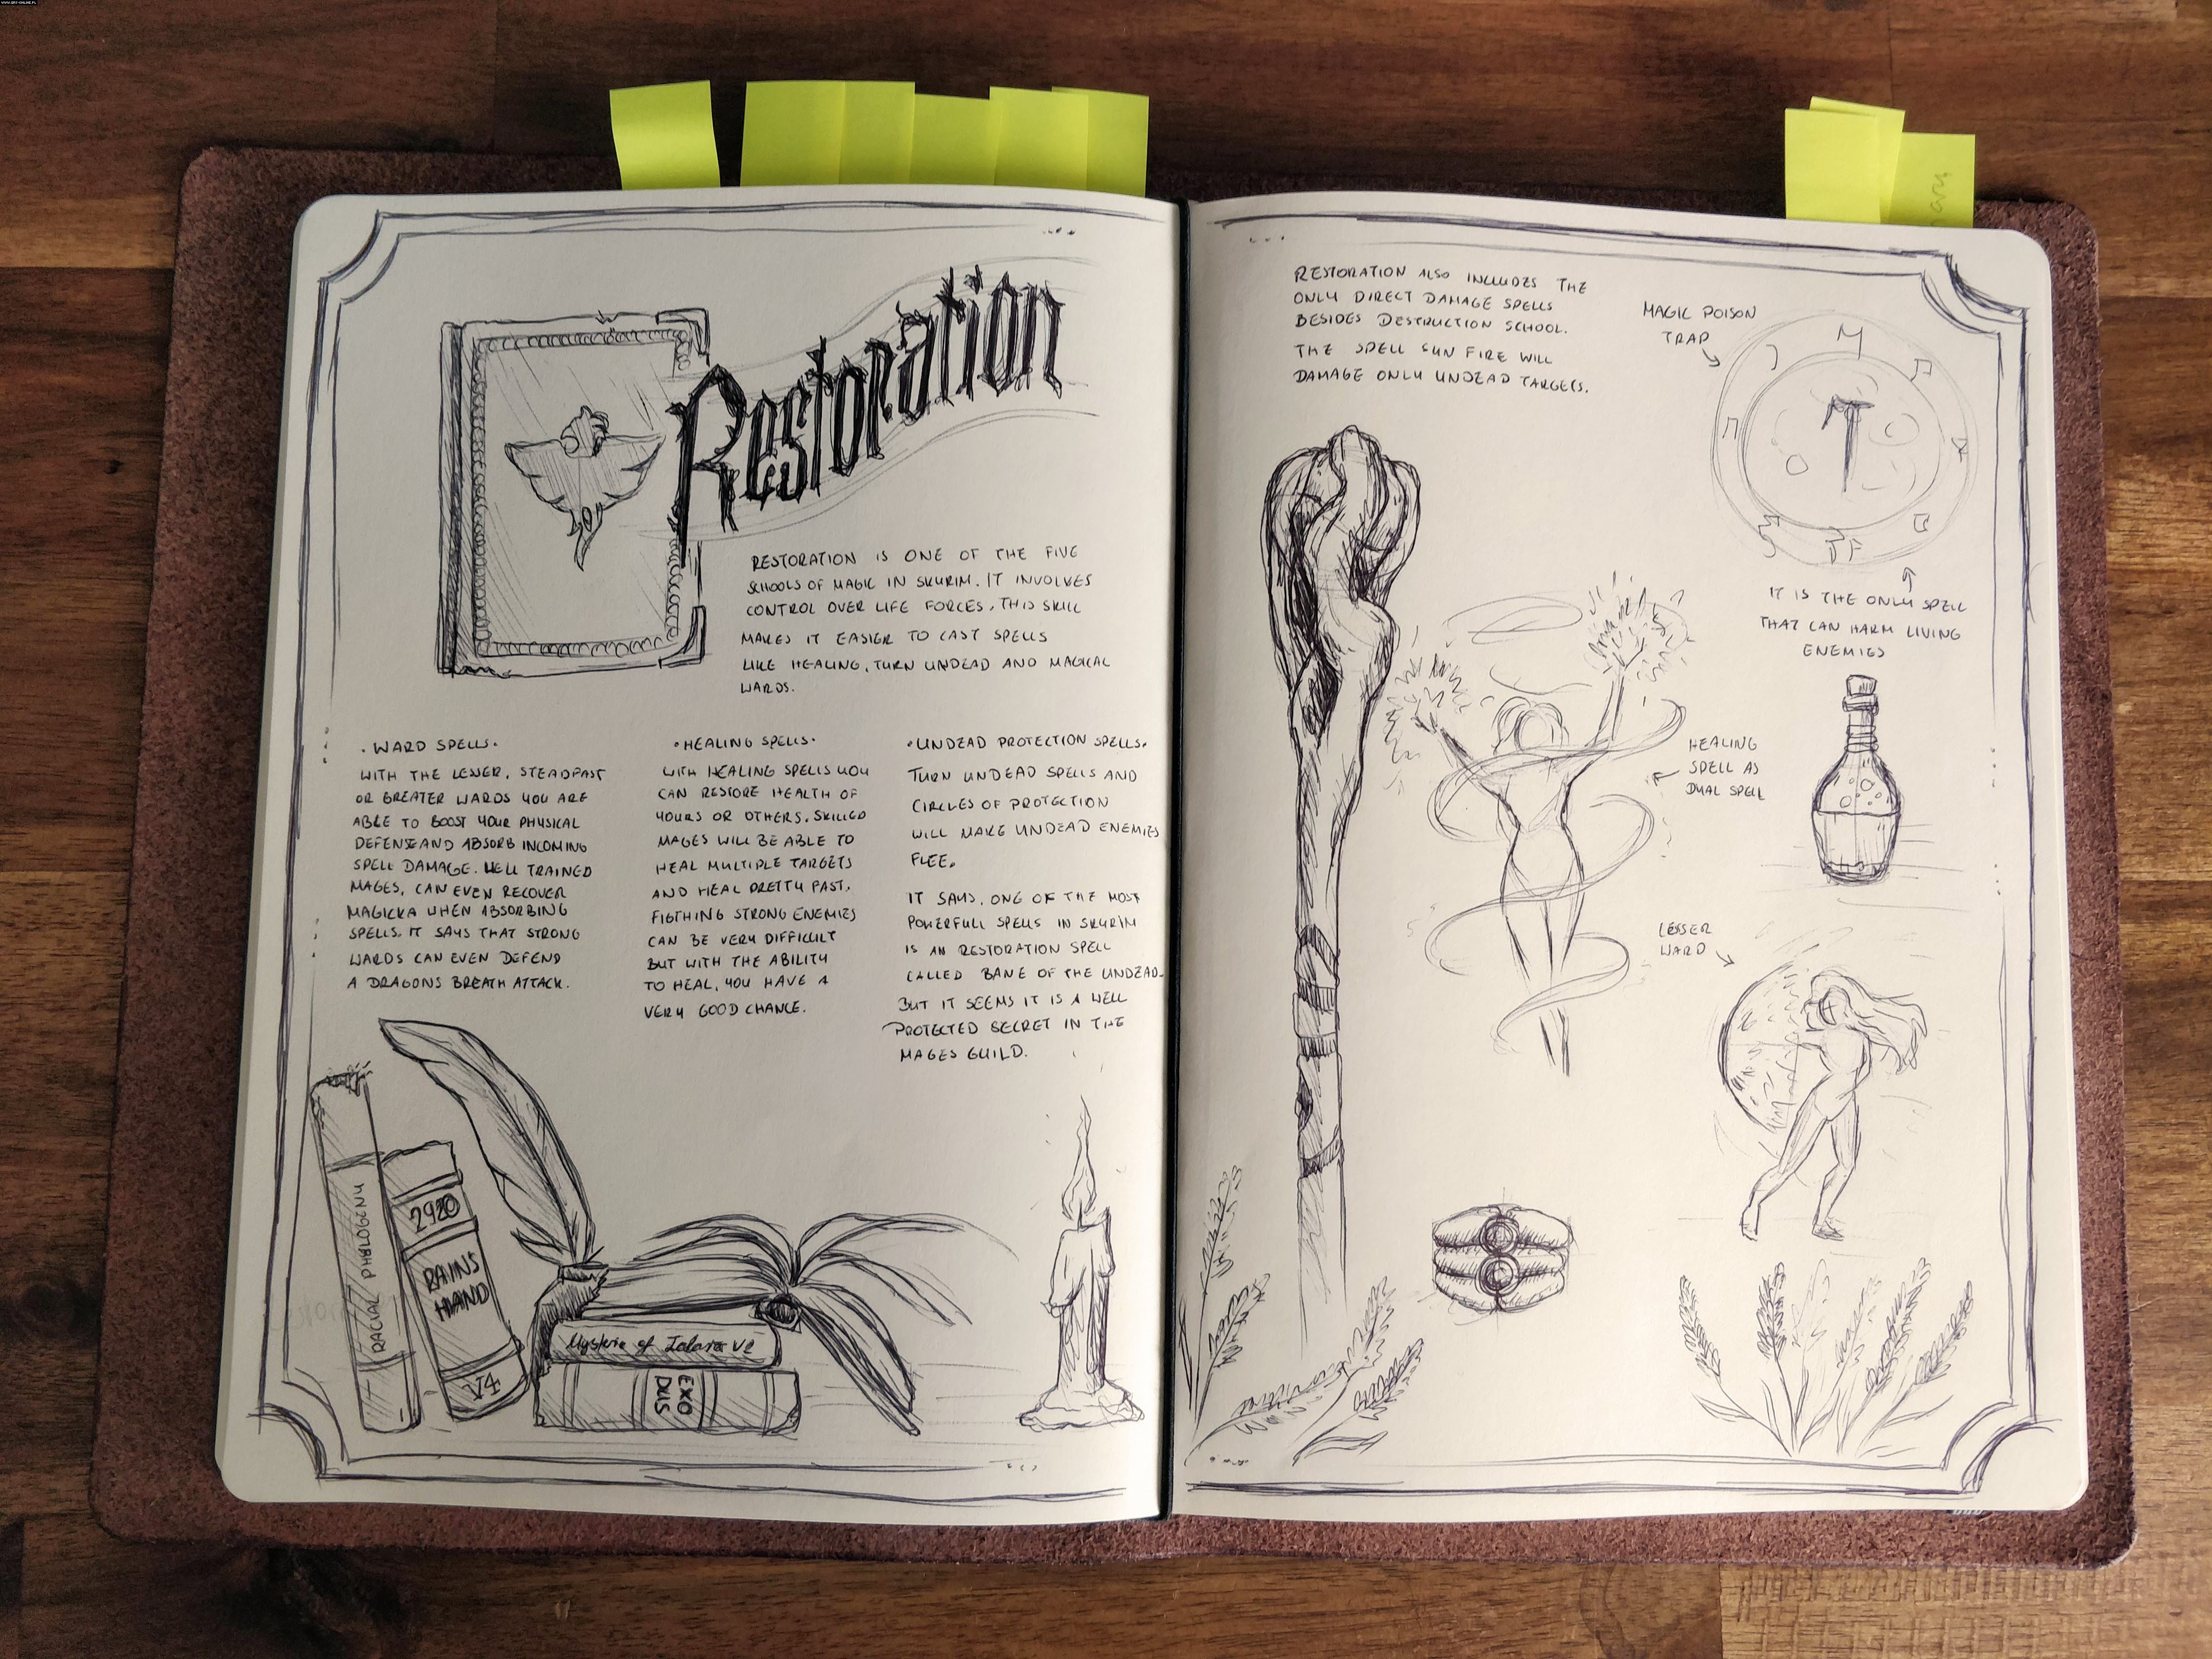 WWW.GRY-ONLINE.PL
Restoration
RESTORATION IS ONE OF THE FIVE
SCHOOLS OF MAGIC IN SKYRIM. IT INVOLVES
CONTROL OVER LIFE FORCES. THIS SKILL
MAKES IT EASIER TO CAST SPELLS
LIKE HEALING, TURN UNDEAD AND MAGICAL
WARDS.
• WARD SPELLS •
WITH THE LESSER, STEADFAST
OR GREATER WARDS YOU ARE
ABLE TO BOOST YOUR PHYSICAL
DEFENSE AND ABSORB INCOMING
SPELL DAMAGE. WELL TRAINED
MAGES, CAN EVEN RECOVER
MAGICKA WHEN ABSORBING
SPELLS. IT SAYS THAT STRONG
WARDS CAN EVEN DEFEND
A DRAGONS BREATH ATTACK.
• HEALING SPELLS •
WITH HEALING SPELLS YOU
CAN RESTORE HEALTH OF
YOURS OR OTHERS. SKILLED
MAGES WILL BE ABLE TO
HEAL MULTIPLE TARGETS
AND HEAL PRETTY FAST.
FIGTHING STRONG ENEMIES
CAN BE VERY DIFFICULT
BUT WITH THE ABILITY
TO HEAL, YOU HAVE A
VERY GOOD CHANCE.
• UNDEAD PROTECTION SPELLS.
TURN UNDEAD SPELLS AND
CIRCLES OF PROTECTION
WILL MAKE UNDEAD ENEMIES
FLEE.
IT SAYS, ONE OF THE MOST
POWERFULL SPELLS IN SKYRIM
IS AN RESTORATION SPELL
CALLED BANE OF THE UNDEAD.
BUT IT SEEMS IT IS A WELL
PROTECTED SECRET IN THE
MAGES GUILD.
RACIAL PHYLOGENY
2920
RAINS
HAND
V4
Mysterie of Talara V2
EXO
DUS
RESTORATION ALSO INCLUDES THE
ONLY DIRECT DAMAGE SPELLS
BESIDES DESTRUCTION SCHOOL.
THE SPELL SUN FIRE WILL
DAMAGE ONLY UNDEAD TARGETS.
MAGIC POISON
TRAP
IT IS THE ONLY SPELL
THAT CAN HARM LIVING
ENEMIES
HEALING
SPELL AS
DUAL SPELL
LESSER
WARD